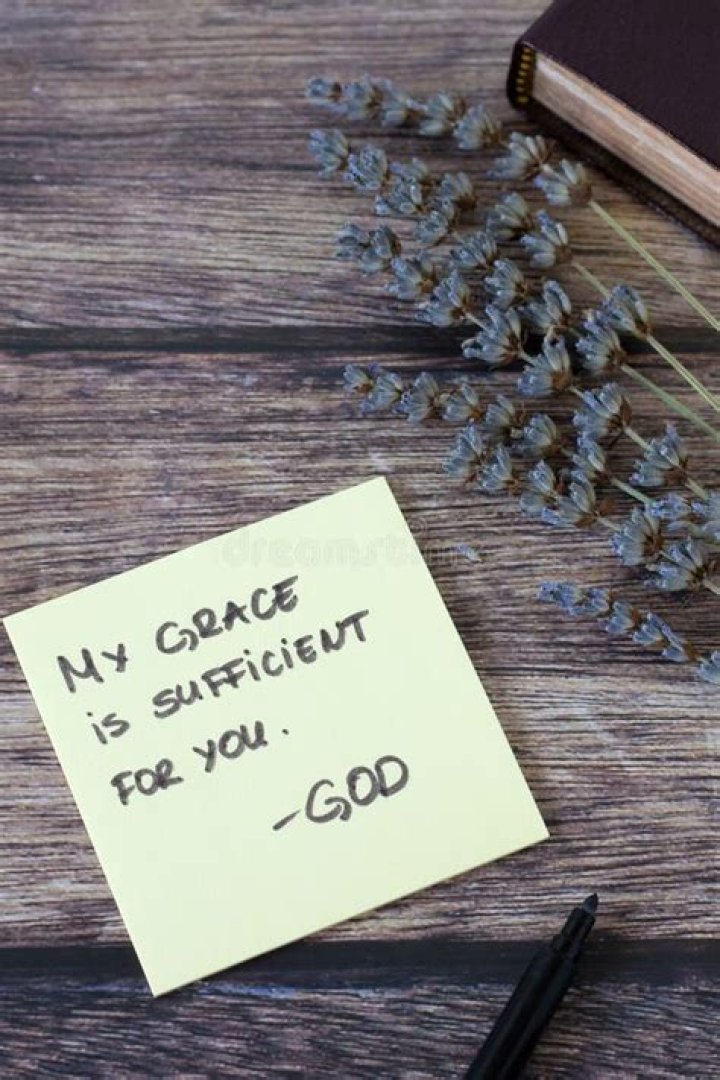 dreamstime
My GRACE
is SUFFiCiENT
FOR YOU.
-GOD